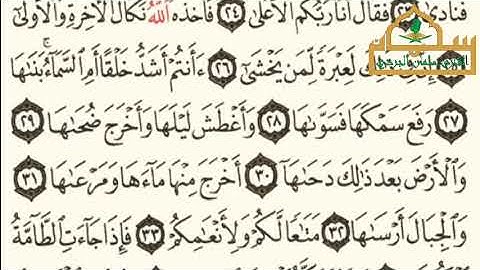 فَنَادَىٰ ٢٣ فَقَالَ أَنَا۠ رَبُّكُمُ ٱلْأَعْلَىٰ ٢٤ فَأَخَذَهُ ٱللَّهُ نَكَالَ ٱلْأَخِرَةِ وَٱلْأُولَىٰ
لَعِبْرَةً لِّمَن يَخْشَىٰٓ ٢٦ ءَأَنتُمْ أَشَدُّ خَلْقًا أَمِ ٱلسَّمَآءُ ۚ بَنَىٰهَا
٢٧ رَفَعَ سَمْكَهَا فَسَوَّىٰهَا ٢٨ وَأَغْطَشَ لَيْلَهَا وَأَخْرَجَ ضُحَىٰهَا ٢٩
وَٱلْأَرْضَ بَعْدَ ذَٰلِكَ دَحَىٰهَآ ٣٠ أَخْرَجَ مِنْهَا مَآءَهَا وَمَرْعَىٰهَا ٣١
وَٱلْجِبَالَ أَرْسَىٰهَا ٣٢ مَتَٰعًا لَّكُمْ وَلِأَنْعَٰمِكُمْ ٣٣ فَإِذَا جَآءَتِ ٱلطَّآمَّةُ